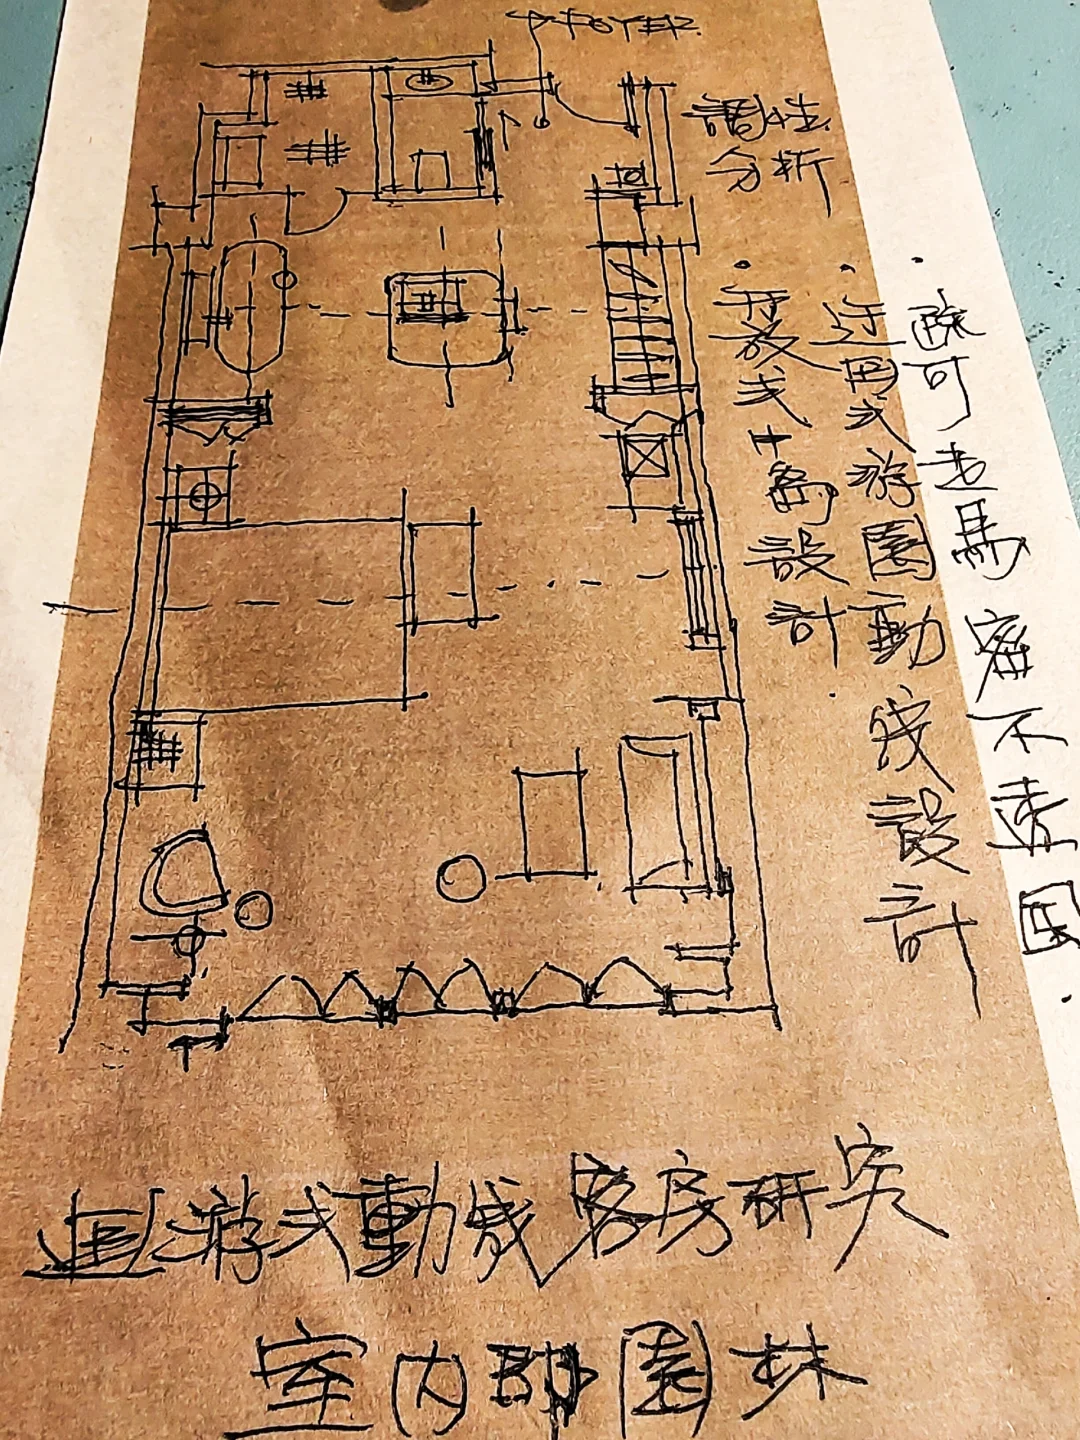 FOYER.
調性
分析
·開放式中島設計.
·迂迴式游園動线設計
·疏可走馬密不透風.
迴游式動线客房研究
室内即園林